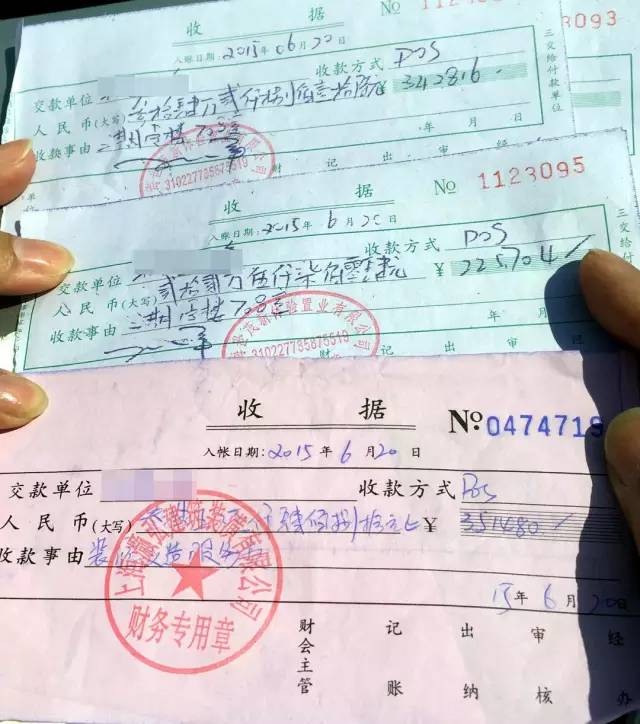 收 据
No 11230
3093
入账日期:2015年06月20日
收款方式 POS
交款单位
人民币(大写) 叁拾肆万贰仟捌佰壹拾陆 ¥ 342816
收款事由 二期 703室
年 月 日
310227785875519
财 记 出 审
三交给付款单位
收 据
No 1123095
入账日期:2015年6月20日
收款方式 POS
交款单位
人民币(大写) 贰拾贰万伍仟柒佰零肆元 ¥ 225704
收款事由 二期 703室
年 月 日
置业有限公司
310227785875519
财 记 出 审
三交给付
收 据
No. 0474719
入帐日期:2015年6月20日
交款单位
收款方式 POS
人民币(大写) 仟肆佰捌拾元 ¥ 351480
收款事由 装 服务
15年6月20日
上海 有限公司
财务专用章
财会主管 记账 出纳 审核 经办